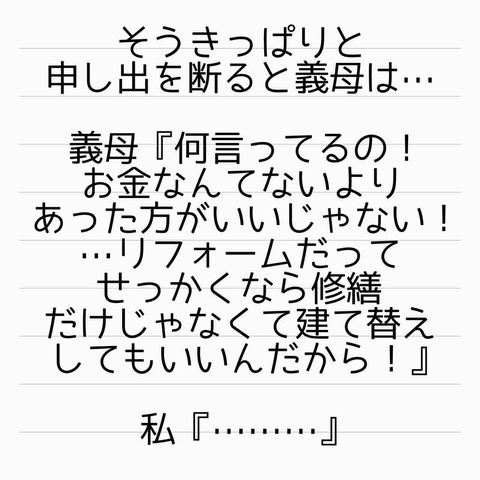 そうきっぱりと
申し出を断ると義母は…
義母『何言ってるの！
お金なんてないより
あった方がいいじゃない！
…リフォームだって
せっかくなら修繕
だけじゃなくて建て替え
してもいいんだから！』
私『………』